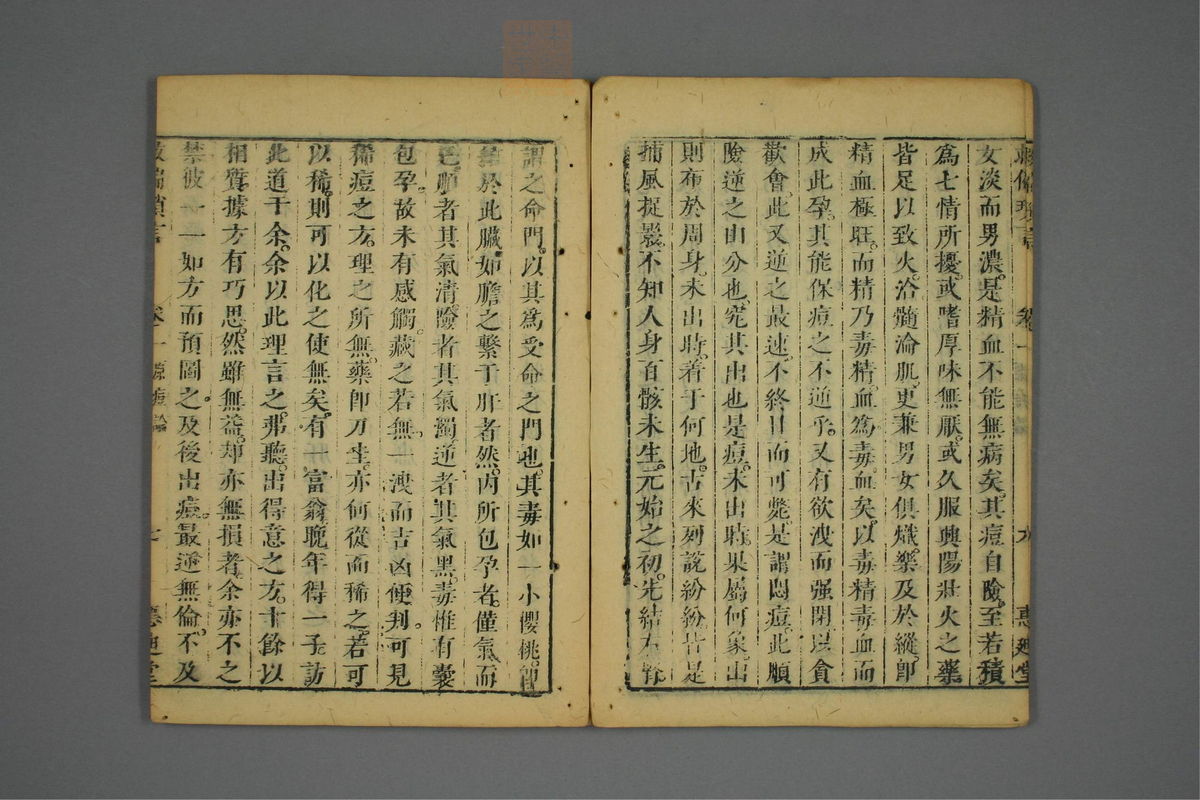 女淡而男濃。是精血不能無病矣。其痘自險。至若積
爲七情所擾。或嗜厚味無厭。或久服興陽壯火之藥
皆足以致火。洽髓淪肌。更兼男女俱熾。藥及於縱。卽
精血極旺。而精乃毒精血爲毒血矣。以毒精毒血而
成此孕。其能保痘之不逆乎。又有欲洩而强閉以貪
歡會。此又逆之最速。不終日而可斃。是謂悶痘。此順
險逆之由分也。究其出也是痘。未出時果屬何象。出
則布於周身。未出時。着于何地。古來列說紛紛皆是
捕風捉影。不知人身百骸未生。元始之初。先結
謂之命門。以其爲受命之門也。其毒如一小櫻桃。卽
於此臟。如膽之繫于肝者然。內所包孕者。僅氣而
已。順者其氣清。險者其氣濁。逆者其氣黑。毒惟有囊
包孕。故未有感觸。藏之若無。一洩而吉凶便判。可見
稀痘之方。理之所無。藥卽刀圭。亦何從而稀之。若可
以稀。則可以化之使無矣。有一富翁晚年得一子。訪
此道于余。余以此理言之。弗聽。出得意之方。十餘以
相質。據方有巧思。然雖無益。却亦無損者。余亦不之
禁。彼一一如方而預圖之。及後出痘。最逆無倫。不及
卷一 惠迪堂